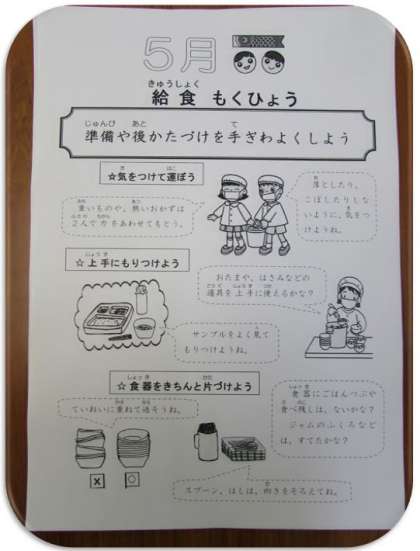 5月
給食 もくひょう
準備や後かたづけを手ぎわよくしよう
☆気をつけて運ぼう
重いものや、熱いおかずは
2人で力をあわせてもとう。
落としたり、
こぼしたりしな
いように、気をつ
けようね。
☆上手にもりつけよう
おたまや、はさみなどの
道具を上手に使えるかな?
サンプルをよく見て
もりつけようね。
☆食器をきちんと片づけよう
ていねいに重ねて返そうね。
食器にごはんつぶや
食べ残しは、ないかな?
ジャムのふくろなど
は、すてたかな?
x
○
スプーン、はしは、向きをそろえてね。